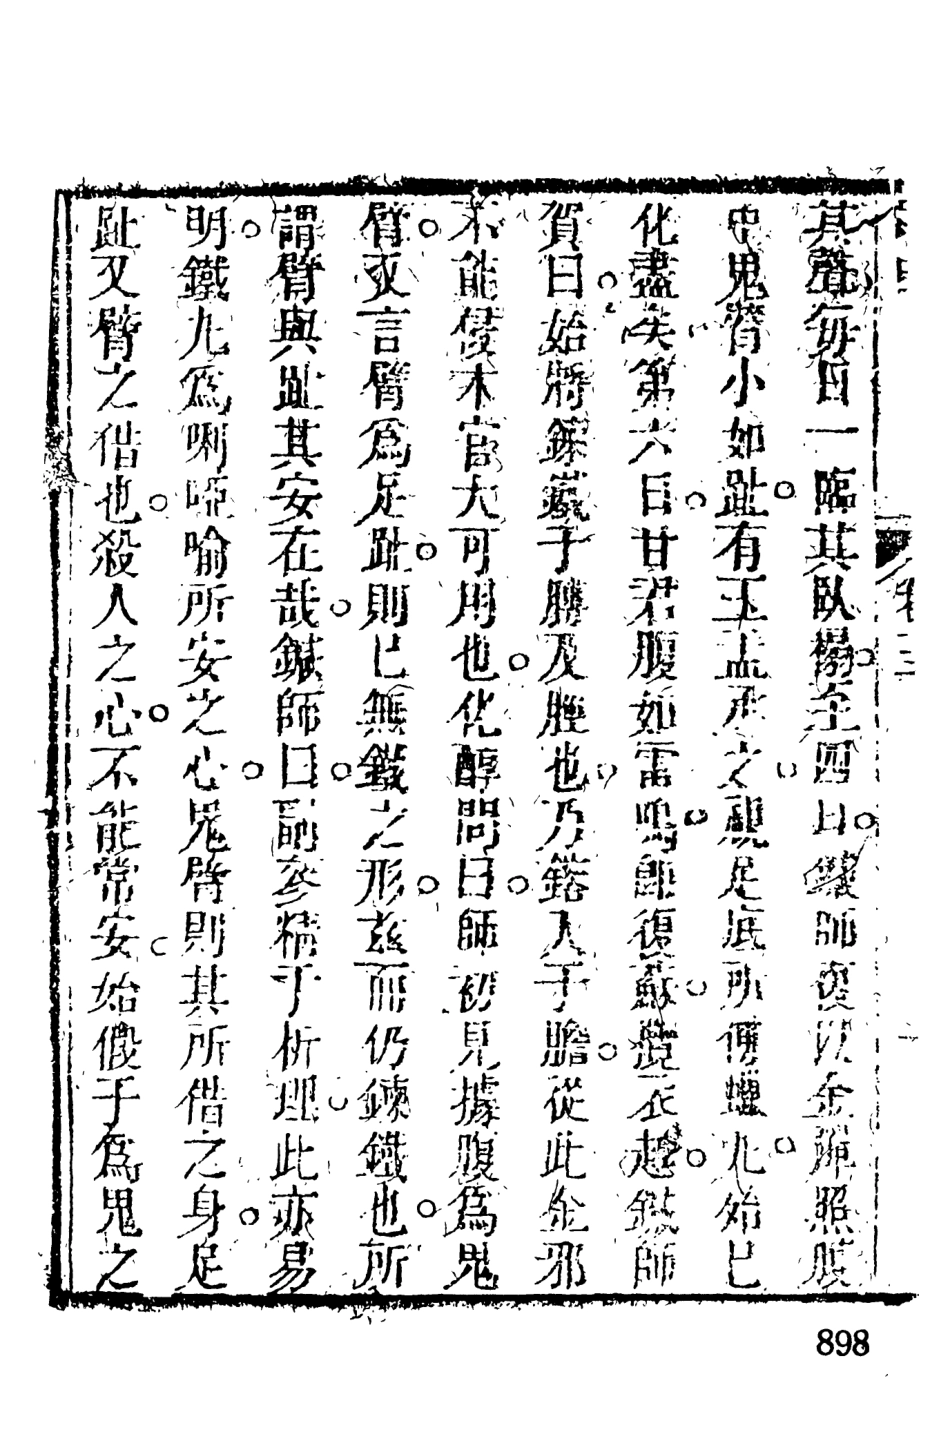 其聲每日一臨其臥榻至四日鍼師復以金鎞照腹
中鬼臂小如趾有玉盂承之覷足底所傅蠟丸始已
化盡矣第六日甘君腹如雷鳴卽復蘇攬衣起鍼師
賀曰始將鍊鐵于膊及脛也乃鎔入于膽從此金邪
不能侵木官大可用也化醇問曰師初見據腹爲鬼
臂又言臂爲足趾則已無鐵之形茲而仍鍊鐵也所
謂臂與趾其安在哉鍼師曰副參精于析理此亦易
明鐵九爲喇啞喻所安之心鬼臂則其所借之身足
趾又臂之偕也殺人之心不能常安始假于爲鬼之
898